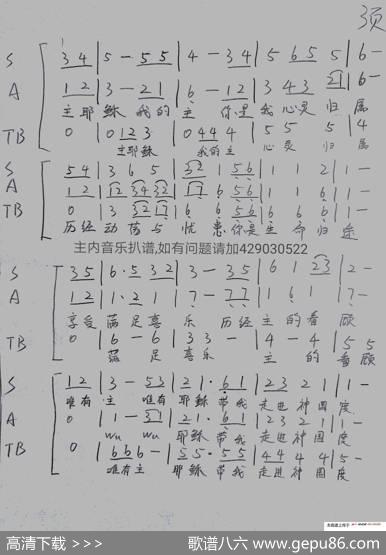 3页
S 3 4 | 5 - 5 5 | 4 - 3 4 | 5 6 5 5 | 6 -
A 1 2 | 3 - 2 1 | 6 - 1 2 | 3 4 3 2 1 | 6 -
主耶稣 我的 主 你是 我 心灵 归 属
TB 0 | 0 1 2 3 | 0 4 4 4 | 5 5 5 | 4
主耶稣 我的主 心灵 归 属
S 5 4 | 3 6 5 | 3 2 1 5 6 | 1 1 2 | 1 -
A 1 2 | 1 2 3 4 3 2 | 1 7 5 6 | 1 1 6 | 1 -
TB 0 | 0 3 3 2 1 7 | 6 6 5 6 | 6 6 6 | 1 -
历经 动荡 与 忧患 你是 生命 归途
主内音乐扒谱,如有问题请加429030522
S 3 5 | 6 · 5 3 2 | 3 - 3 5 | 6 1 2 3 | 2 -
A 1 2 | 1 · 2 1 | 7 - 7 7 | 1 6 1 | 7 -
享受 满足喜 乐 历经 主 的看 顾
TB 0 | 6 - 6 | 3 3 - | 4 - 4 | 5 5
满 足 喜乐 主 的 看顾
S 1 2 | 3 - 5 3 | 2 1 · 6 1 | 2 3 2 1 | 1 -
唯有 主 唯有 耶稣 带我 走进神国 度
A 0 | 1 - 3 1 | 2 1 · 6 1 | 2 3 2 1 | 1 -
wu wu 耶稣 带我 走进神国 度
TB 0 | 6 6 6 - | 5 5 · 5 5 | 4 4 4 4 | 5 -
唯有主 耶稣 带我 走进神国 度
高清下载 >>>
歌谱八六 www.gepu86.com